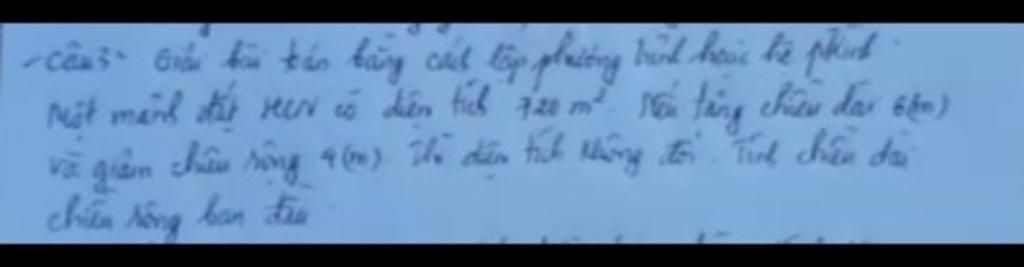 - Câu 3: Giải bài toán bằng cách lập phương trình hoặc hệ phtrình
Một mảnh đất HCN có diện tích 720 m². Nếu tăng chiều dài 6(m)
và giảm chiều rộng 4(m) thì diện tích không đổi. Tính chiều dài
chiều rộng ban đầu